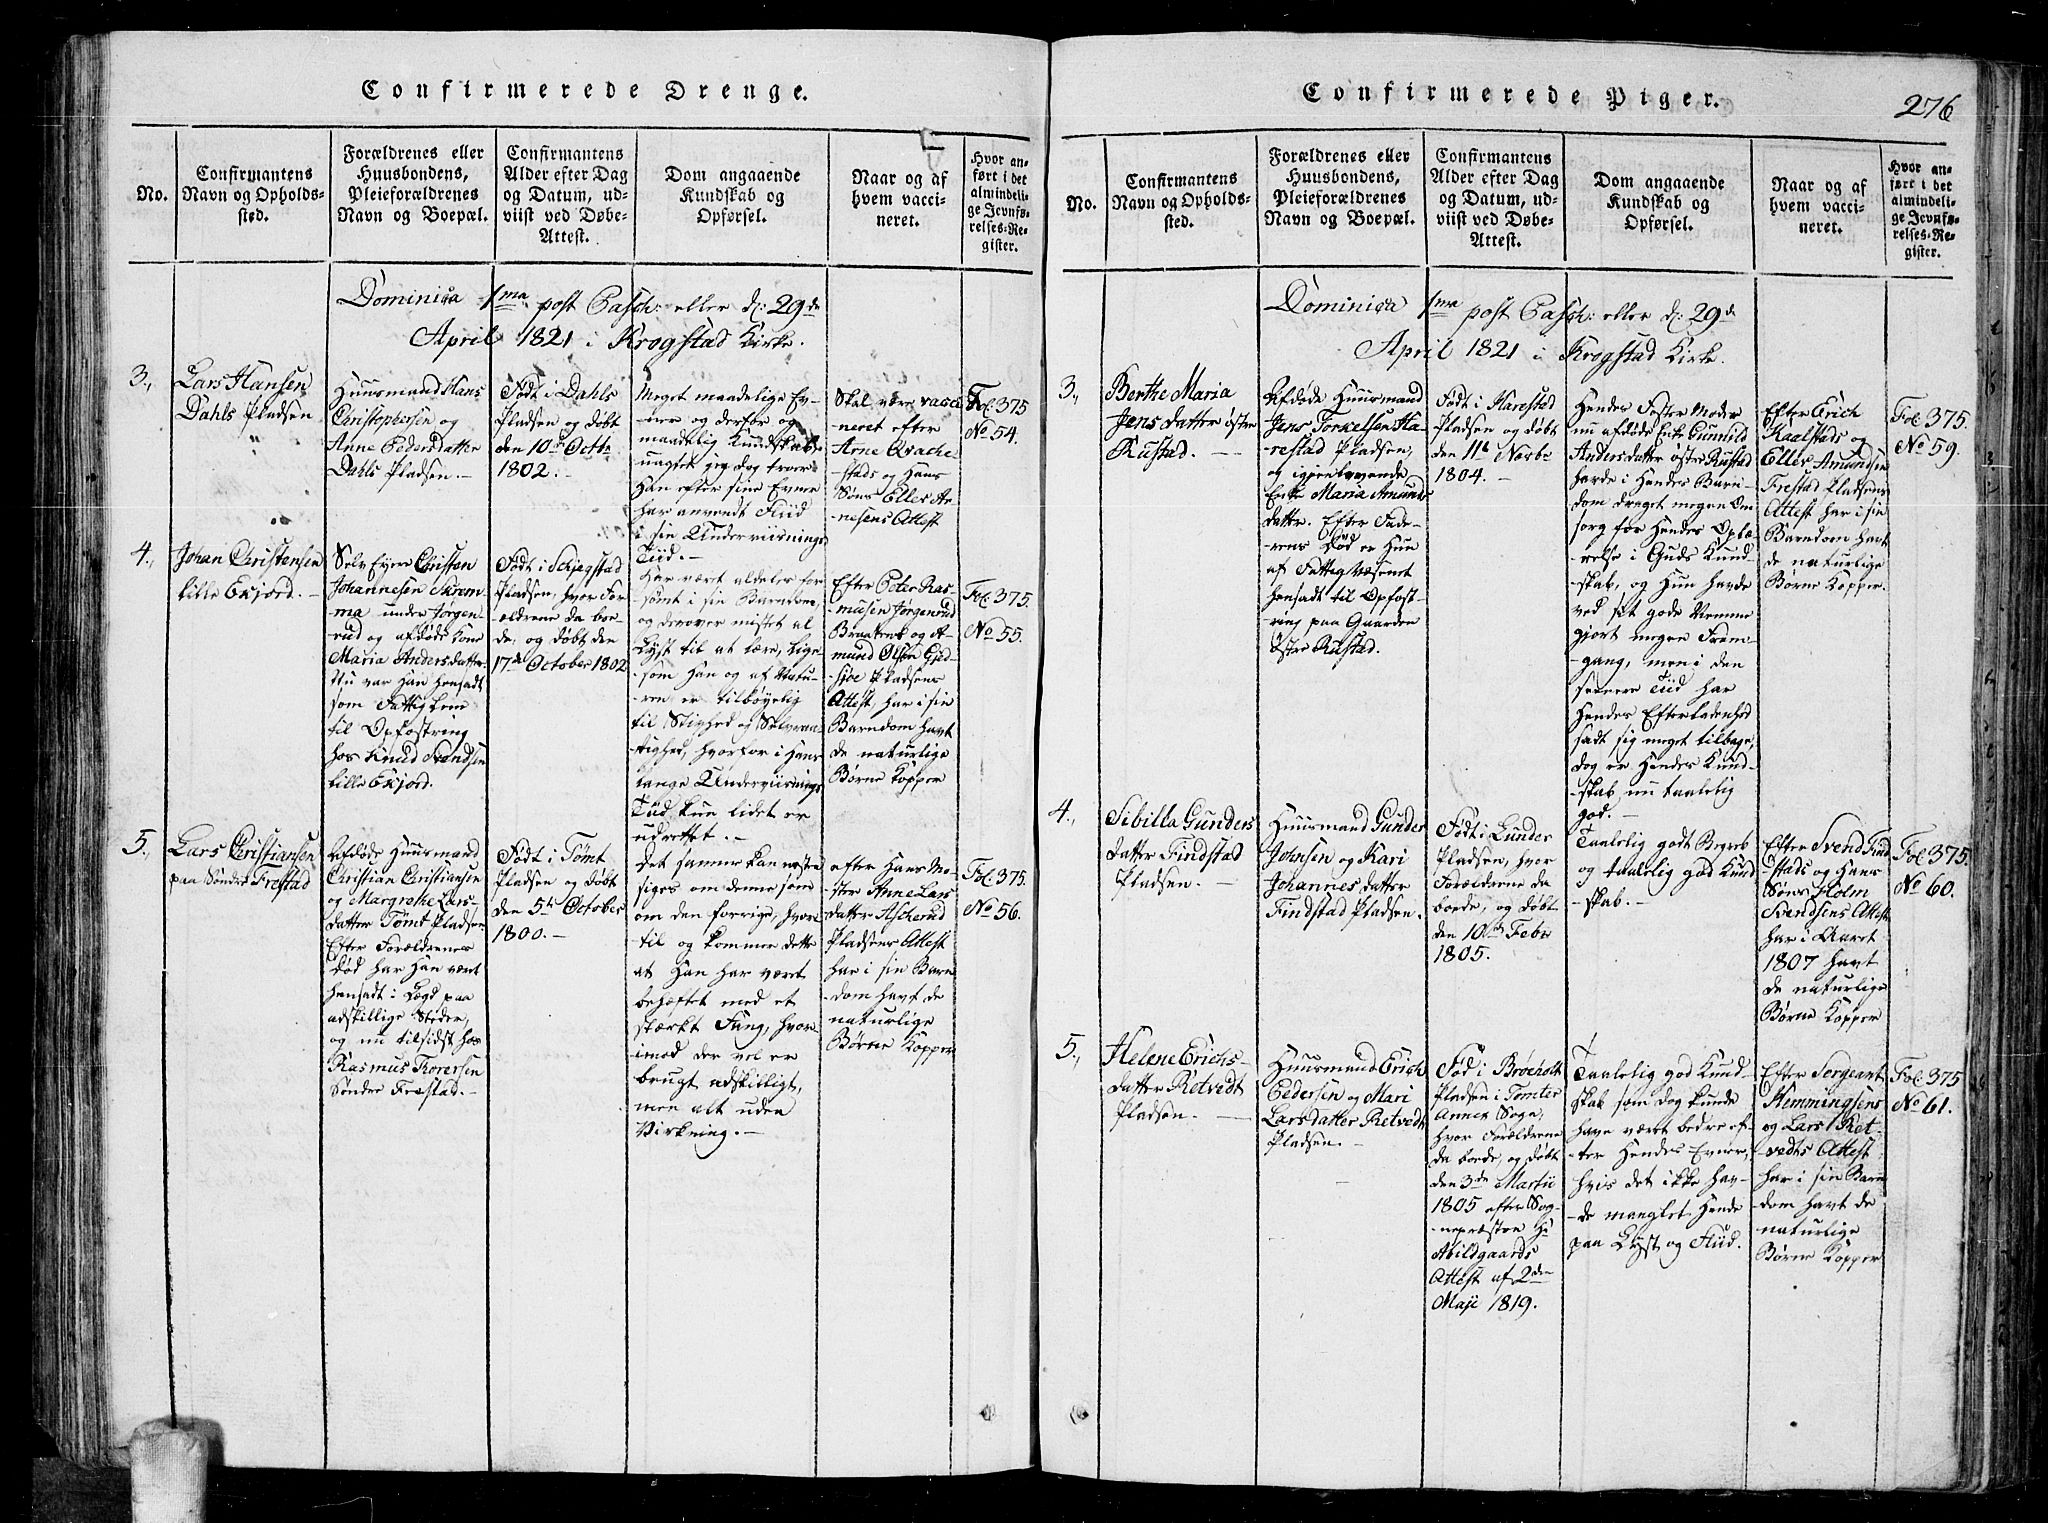 Confirmerede Drenge.
No.
Confirmantens
Navn og Opholds-
sted.
Forældrenes eller
Huusbondens,
Pleieforældrenes
Navn og Boepæl.
Confirmantens
Alder efter Dag
og Datum, ud-
viist ved Døbe-
Attest.
Dom angaaende
Kundskab og
Opførsel.
Naar og af
hvem vacci-
neret.
Hvor an-
ført i det
almindeli-
ge Jevnfø-
relses-Re-
gister.
Dominica 1ma post Pasch: eller d: 29de
April 1821 i Krogstad Kirke.
3.,
Lars Hansen
Dahls Pladsen
Huusmand Hans
Christophersen og
Anne Pedersdatter
Dahls Pladsen.-
Født i Dahls
Pladsen og døbt
den 10de Octbr
1802.-
Meget maadelige Ev-
ner og derfor og
maadelig Kundskab,
uagtet jeg dog troer
Han efter sine Evner
har anvendt Fliid
i sin Underviisnings
Tiid.-
Skal være vacci
neret efter
Arne Qvache-
stads og Hans
Søns Ellef Ar-
nesens Attest
Fol. 375
No 54.
4.,
Johan Christensen
lille Ekjord.-
Selv Eyer Christen
Johannesen Skrem-
ma under Jørgen-
rud og afdøde Kone
Maria Andersdatter.
Nu var Han hensadt
som Fattig Lem
til Opfostring
hos Knud Svendsen
lille Ekjord.
Født i Schjegstad
Pladsen, hvor For-
ældrene da boe-
de, og døbt den
17de October 1802
Har vært aldeles for
sømt i sin Barndom,
og derover mistet al
Lyst til at lære, lige-
som Han og af Natu-
ren er tilbøyelig
til Stivhed og Selvraa-
dighed, hvorfor i Hans
lange Underviisnings
Tiid kun lidet er
udrettet.-
Efter Peter Ras-
musen Jørgenrud
Braatenk og A-
mund Olsen Gjed-
sjøe Pladsens
Attest, har i sin
Barndom havt
de naturlige
Børne Kopper
Fol. 375.
No 55.
5.,
Lars Christiansen
paa Søndre Frestad
Afdøde Huusmand
Christian Christiansen
og Margrethe Lars-
datter Tømt Pladsen
Efter Forældrenes
Død har Han vært
hensadt i Lægd paa
adskillige Steder,
og nu tilsidst hos
Rasmus Torersen
Søndre Frestad.-
Født i Tømt
Pladsen og døbt
den 5te October
1800.-
Det samme kan næsten
siges om denne som
om den forrige, hvor-
til og kommer dette
at Han har været
behæftet med et
stærkt Fang, hvor-
imod der vel er
brugt adskilligt,
men alt uden
Virkning.-
efter Hans Mo-
ster Anne Lars
datter Ascherud
Pladsens Attest
har i sin Barn
dom havt de
naturlige
Børne Kopper
Fol. 375.
No 56.
Confirmerede Piger.
276
No.
Confirmantens
Navn og Opholds-
sted.
Forældrenes eller
Huusbondens,
Pleieforældrenes
Navn og Boepæl.
Confirmantens
Alder efter Dag
og Datum, ud-
viist ved Døbe-
Attest.
Dom angaaende
Kundskab og
Opførsel.
Naar og af
hvem vacci-
neret.
Hvor an-
ført i det
almindeli-
ge Jevnfø-
relses-Re-
gister.
Dominica 1ma post Pasch: eller d: 29de
April 1821 i Krogstad Kirke.
3.,
Berthe Maria
Jensdatter østre
Rustad.-
Afdøde Huusmand
Jens Torkelsen Ha-
restad Pladsen,
og igjenlevende
Enke Maria Amunds
datter. Efter Fade-
rens Død er Hun
af Fattig Væsenet
hensadt til Opfost-
ring paa Gaarden
Østre Rustad.
Født i Harestad
Pladsen og døbt
den 11te Novbr
1804.-
Hendes Foster Moder
nu afdøde Enke Gunnild
Andersdatter østre Rustad
havde i Hendes Barn-
dom draget megen Om
sorg for Hendes Oplæ-
relse i Guds Kund-
skab, og Hun havde
ved sit gode Nemme
gjort megen Frem-
gang, men i den
senere Tiid har
Hendes Efterladenhed
sadt sig meget tilbage,
dog er Hendes Kund-
skab nu taalelig
god.-
Efter Erich
Kaelstads og
Ellef Amundsen
Frestad Pladsens
Attest har i sin
Barndom havt
de naturlige
Børne Kopper.
Fol. 375.
No 59.
4.,
Sibilla Gunders
datter Findstad
Pladsen.-
Huusmand Gunder
Johnsen og Kari
Johannesdatter
Findstad Pladsen.
Født i Lunder
Pladsen, hvor
Forældrene da
boede, og døbt
den 10de Febr
1805.
Taalelig godt Begreb
og taalelig god Kund
skab.-
Efter Svend Find
stads og Hans
Søns Holm
Svendsens Attest
har i Aaret
1807 havt
de naturlige
Børne Kopper
Fol. 375.
No 60.
5.,
Helene Erichs-
datter Retvedt
Pladsen.-
Huusmand Erich
Pedersen og Mari
Larsdatter Retvedt
Pladsen.-
Fød i Brøeholt
Pladsen i Tomter
Annex Sogn,
hvor Forældrene
da boede, og døbt
den 3de Martii
1805 efter Sog-
nepræsten Hr
Abildgaards
Attest af 2den
Maji 1819.
Taalelig god Kund-
skab som dog kunde
have været bedre ef-
ter Hendes Evner,
hvis det ikke hav-
de manglet Hende
paa Lyst og Fliid.
Efter Sergeant
Hemmingsens
og Lars Ret-
vedts Attest,
har i sin Barn
dom havt de
naturlige
Børne Kopper
Fol. 375
No 61.